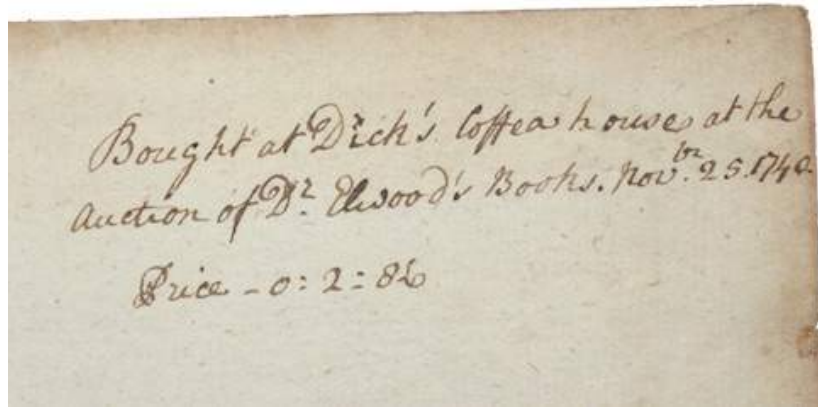 Bought at Dick's Coffea house at the
Auction of Dr. Elwood's Books. Novbr. 25. 1740.
Price - 0 : 2 : 8½